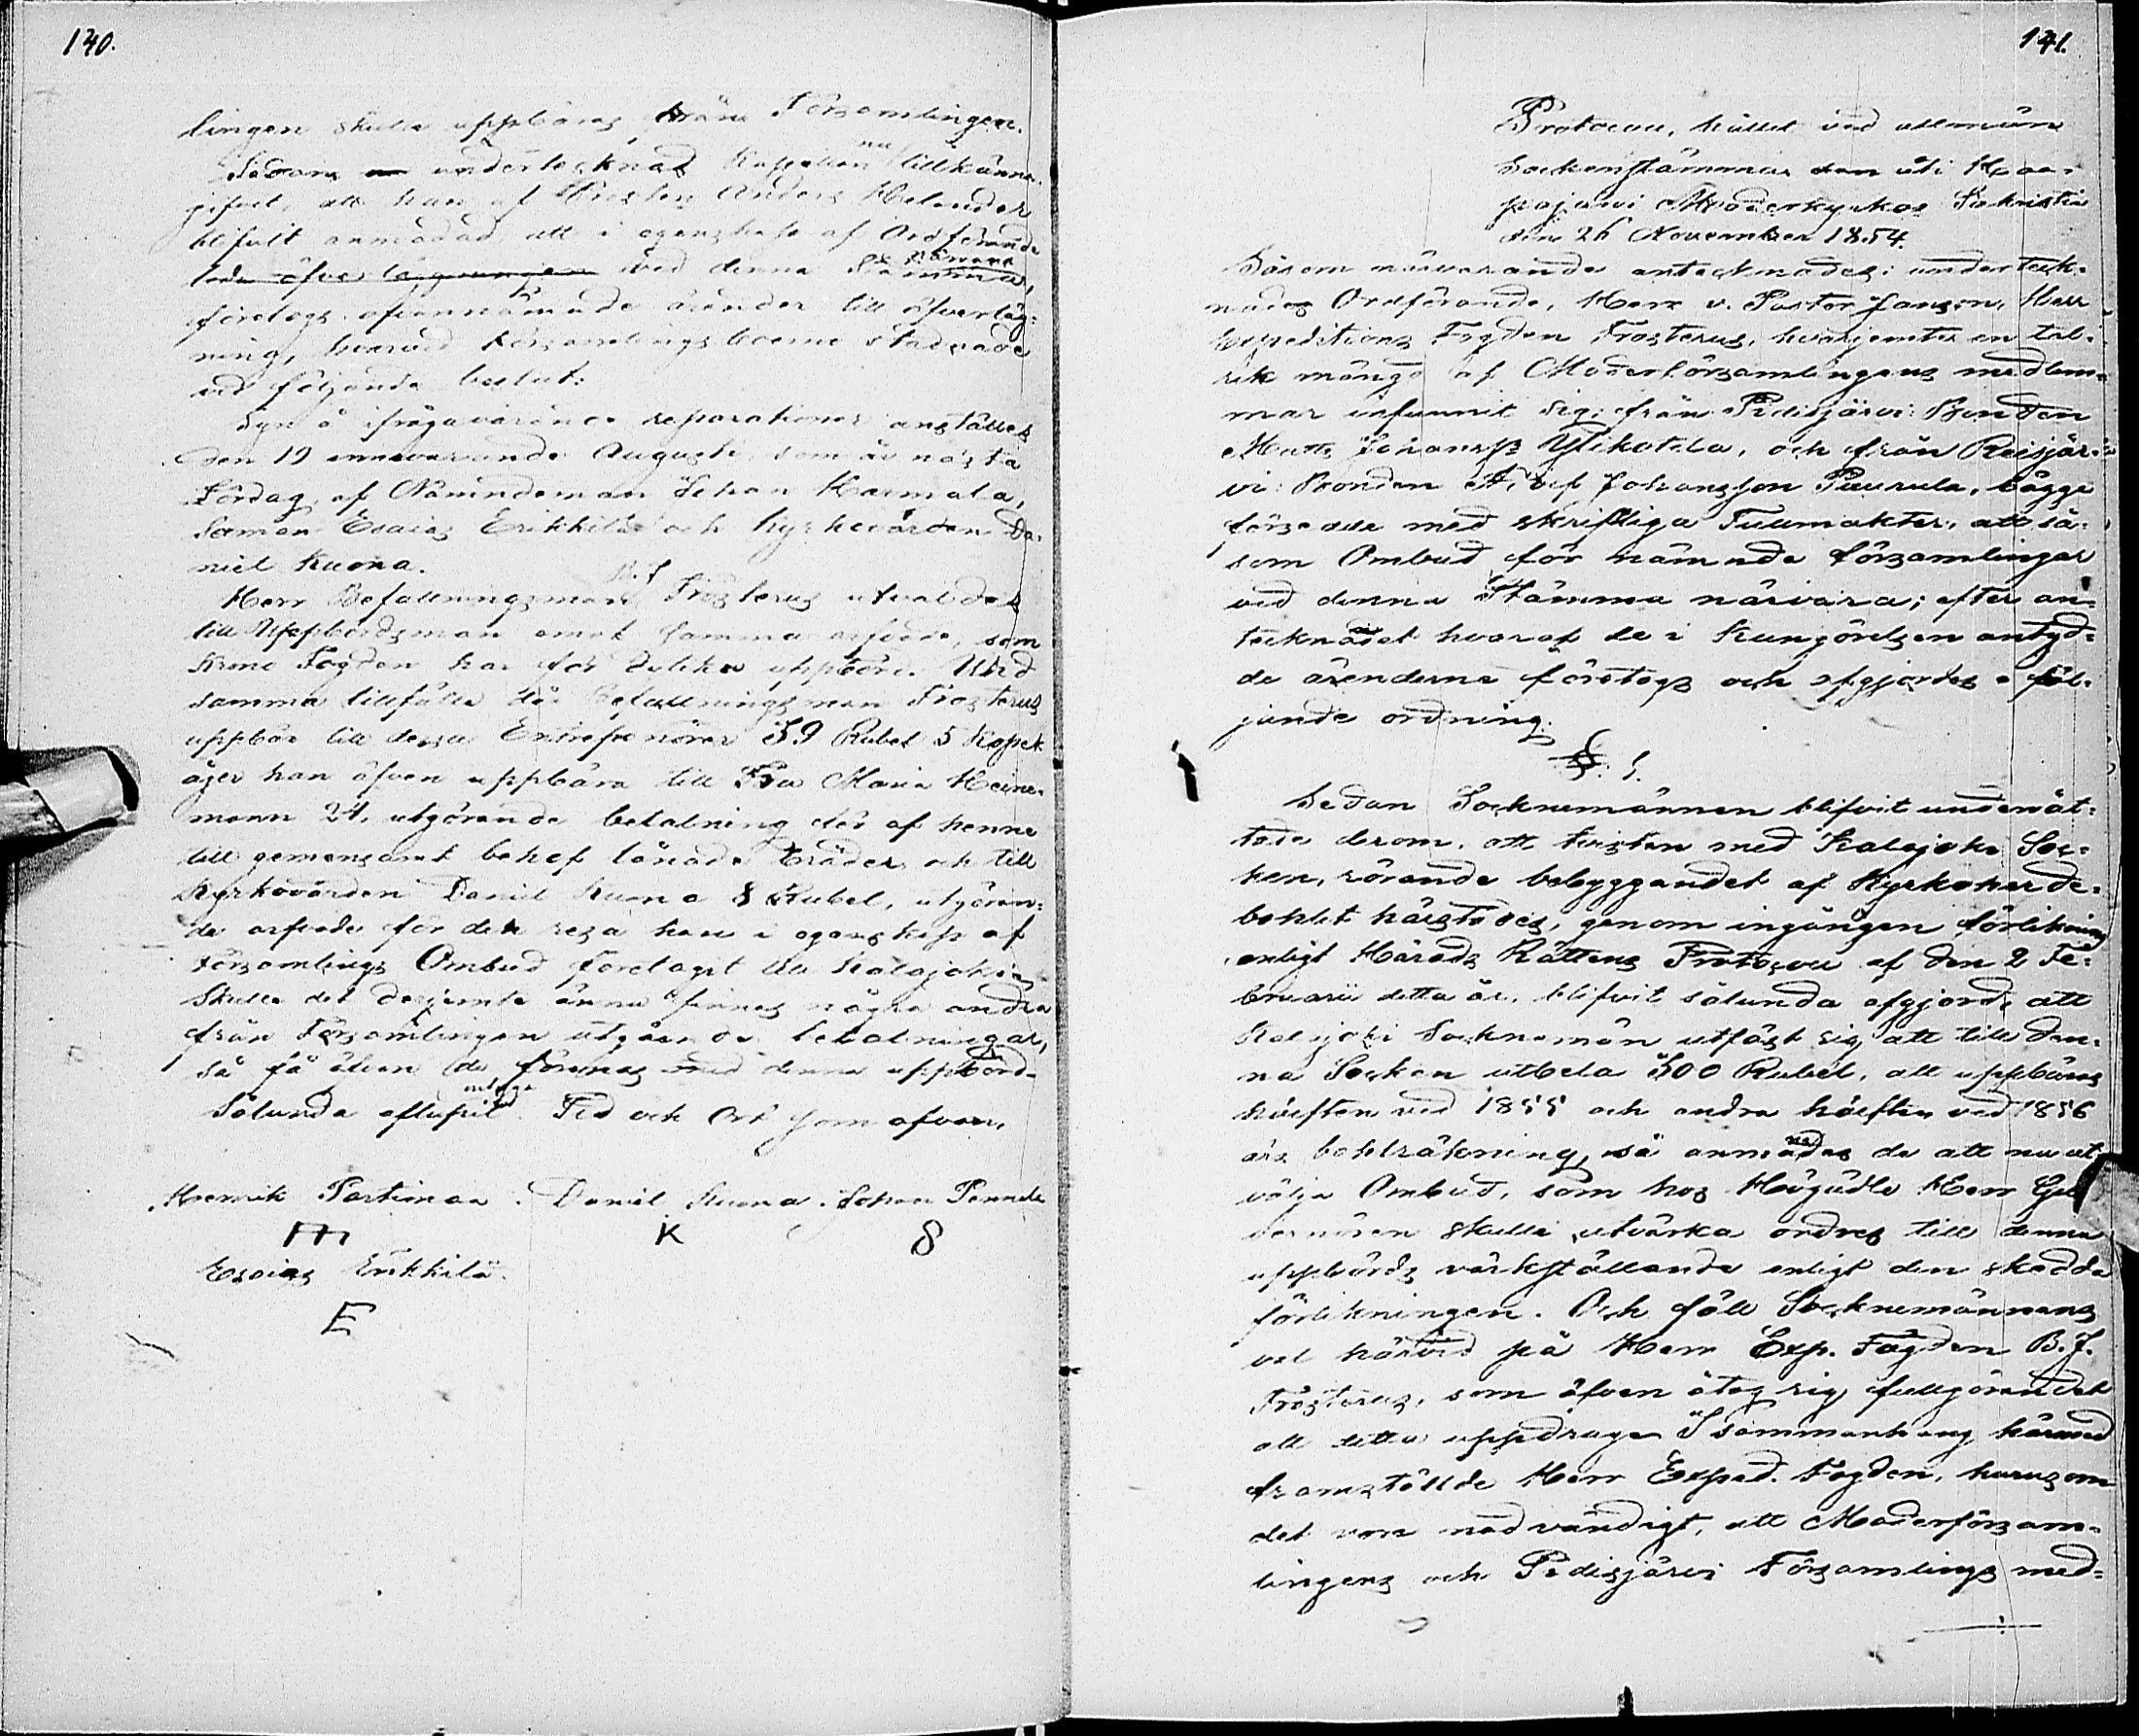 140.
lingen skulle uppbäras från Församlingen.
Sedan undertecknad Kapellan nu tillkänna-
gifvit, att han af Prosten Anders Helander
blifvit anmodad att i egenskap af Ordförande
leda öfverläggningen vid denna Stämma, närvara
företogs ofvannämnde ärender till öfverläg-
ning, hvarvid Församlingsboerne stadnade
vid följande beslut:
Syn å ifrågavarande reparationer anställes
den 19 innevarande Augusti, som är nästa
Lördag, af Nämndeman Johan Harmala,
Sexman Esaias Erikkilä och Kyrkovärden Da-
niel Kuona.
Herr Befallningsman B. J. Frosterus utvaldes
till Uppbördsman emot samma arfvode, som
Krono Fogden har för dylika uppbörd. Vid
samma tillfälle då Befallningsman Frosterus
uppbär till dessa Entreprenörer 59 Rubel 5 Kopek
äger han äfven uppbära till Fru Maria Heine-
mann 24, utgörande betalning för af henne
till gemensamt behof lånade bräder och till
Kyrkovärden Daniel Kuona 8 Rubel, utgöran-
de arfvode för den resa han i egenskap af
Församlings Ombud företagit till Kalajoki
Skulle det derjemte ännu finnas några andra
från Församlingen utgående betalningar,
så få äfven de förenas med denna uppbörd.
Sålunda aflupit intyga Tid och Ort som ofvan.
Henrik Partimaa. Daniel Kuona. Johan Pennala
m K 8
Esaias Erikkilä.
E
141.
Protocoll, hållet vid allmän
Sockenstämma uti Haa-
pajärvi Moderkyrkas Sakristia
den 26 November 1854.
Såsom närvarande antecknades: underteck-
nades Ordförande, Herr v. Pastor Janson, Herr
Expeditions Fogden Frosterus, hvarjemte en tal-
rik mängd af Moderförsamlingens medlem-
mar infunnit sig; från Pidisjärvi: Bonden
Matts Johanss Ylikotila, och från Reisjär-
vi: Bonden Adolf Johansson Paurula, bägge
försedde med skriftliga Fullmakter, att så-
som Ombud för nämnde församlingar
vid denna Stämma närvara; efter an-
tecknandet hvaraf de i Kungörelsen antyd-
de ärenderne företogs och afgjordes i föl-
jande ordning.
§. 1.
Sedan Socknemännen blifvit underrät-
tade derom, att tvisten med Kalajoki Soc-
ken, rörande bebyggandet af Kyrkoherde-
bohlet härstädes, genom ingången förlikning
enligt Härads Rättens Protocoll af den 2 Fe-
bruarii detta år, blifvit sålunda afgjord, att
Kalajoki Socknemän utfäst sig att till den-
na Socken utbetala 300 Rubel, att uppbäras
hälften vid 1855 och andra hälften vid 1856
års bohlräkning, så anmodades de att nu ut-
välja Ombud, som hos Högädle Herr Gu-
vernören skulle utvärka ordres till denna
uppbörds värkställande enligt den skedda
förlikningen. Och föll Socknemännens
val härvid på Herr Exp. Fogden B. J.
Frosterus, som äfven åtog sig fullgörandet
af detta uppdrag. I sammanhang härmed
framställde Herr Exped. Fogden, hurusom
det vore nödvändigt, att Moderförsam-
lingens och Pidisjärvi Församlings med-